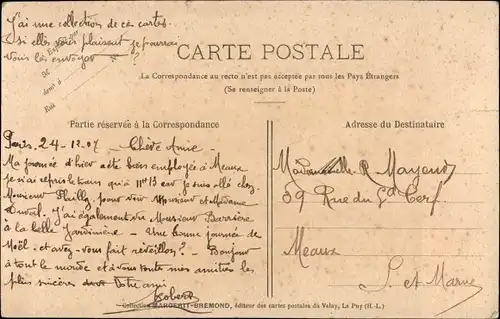 J'ai une collection de ces cartes.
Si elles vous plaisent je pourrai
vous les envoyer ?
M. Expéditeur
demt à
Rue
CARTE POSTALE
La Correspondance au recto n'est pas acceptée par tous les Pays Étrangers
(Se renseigner à la Poste)
Partie réservée à la Correspondance
Adresse du Destinataire
Paris. 24-12-07 Chère Amie
Ma journée d'hier a été bien employée à Meaux
je n'ai repris le train qu'à 11h 13 car je suis allé chez
Monsieur pour voir Monsieur et Madame
Duval. J'ai également vu Monsieur Barrière
à la belle Jardinière - Une bonne journée de
Noël - et avez-vous fait réveillon ? - Bonjour
à tout le monde et à vous toutes mes amitiés les
plus sincères Votre ami
Robert
Mademoiselle R. Mayeud
59 Rue du Gd Cerf
Meaux
S. et Marne
Collection MARGERIT-BREMOND, éditeur des cartes postales du Velay, Le Puy (H.-L.)